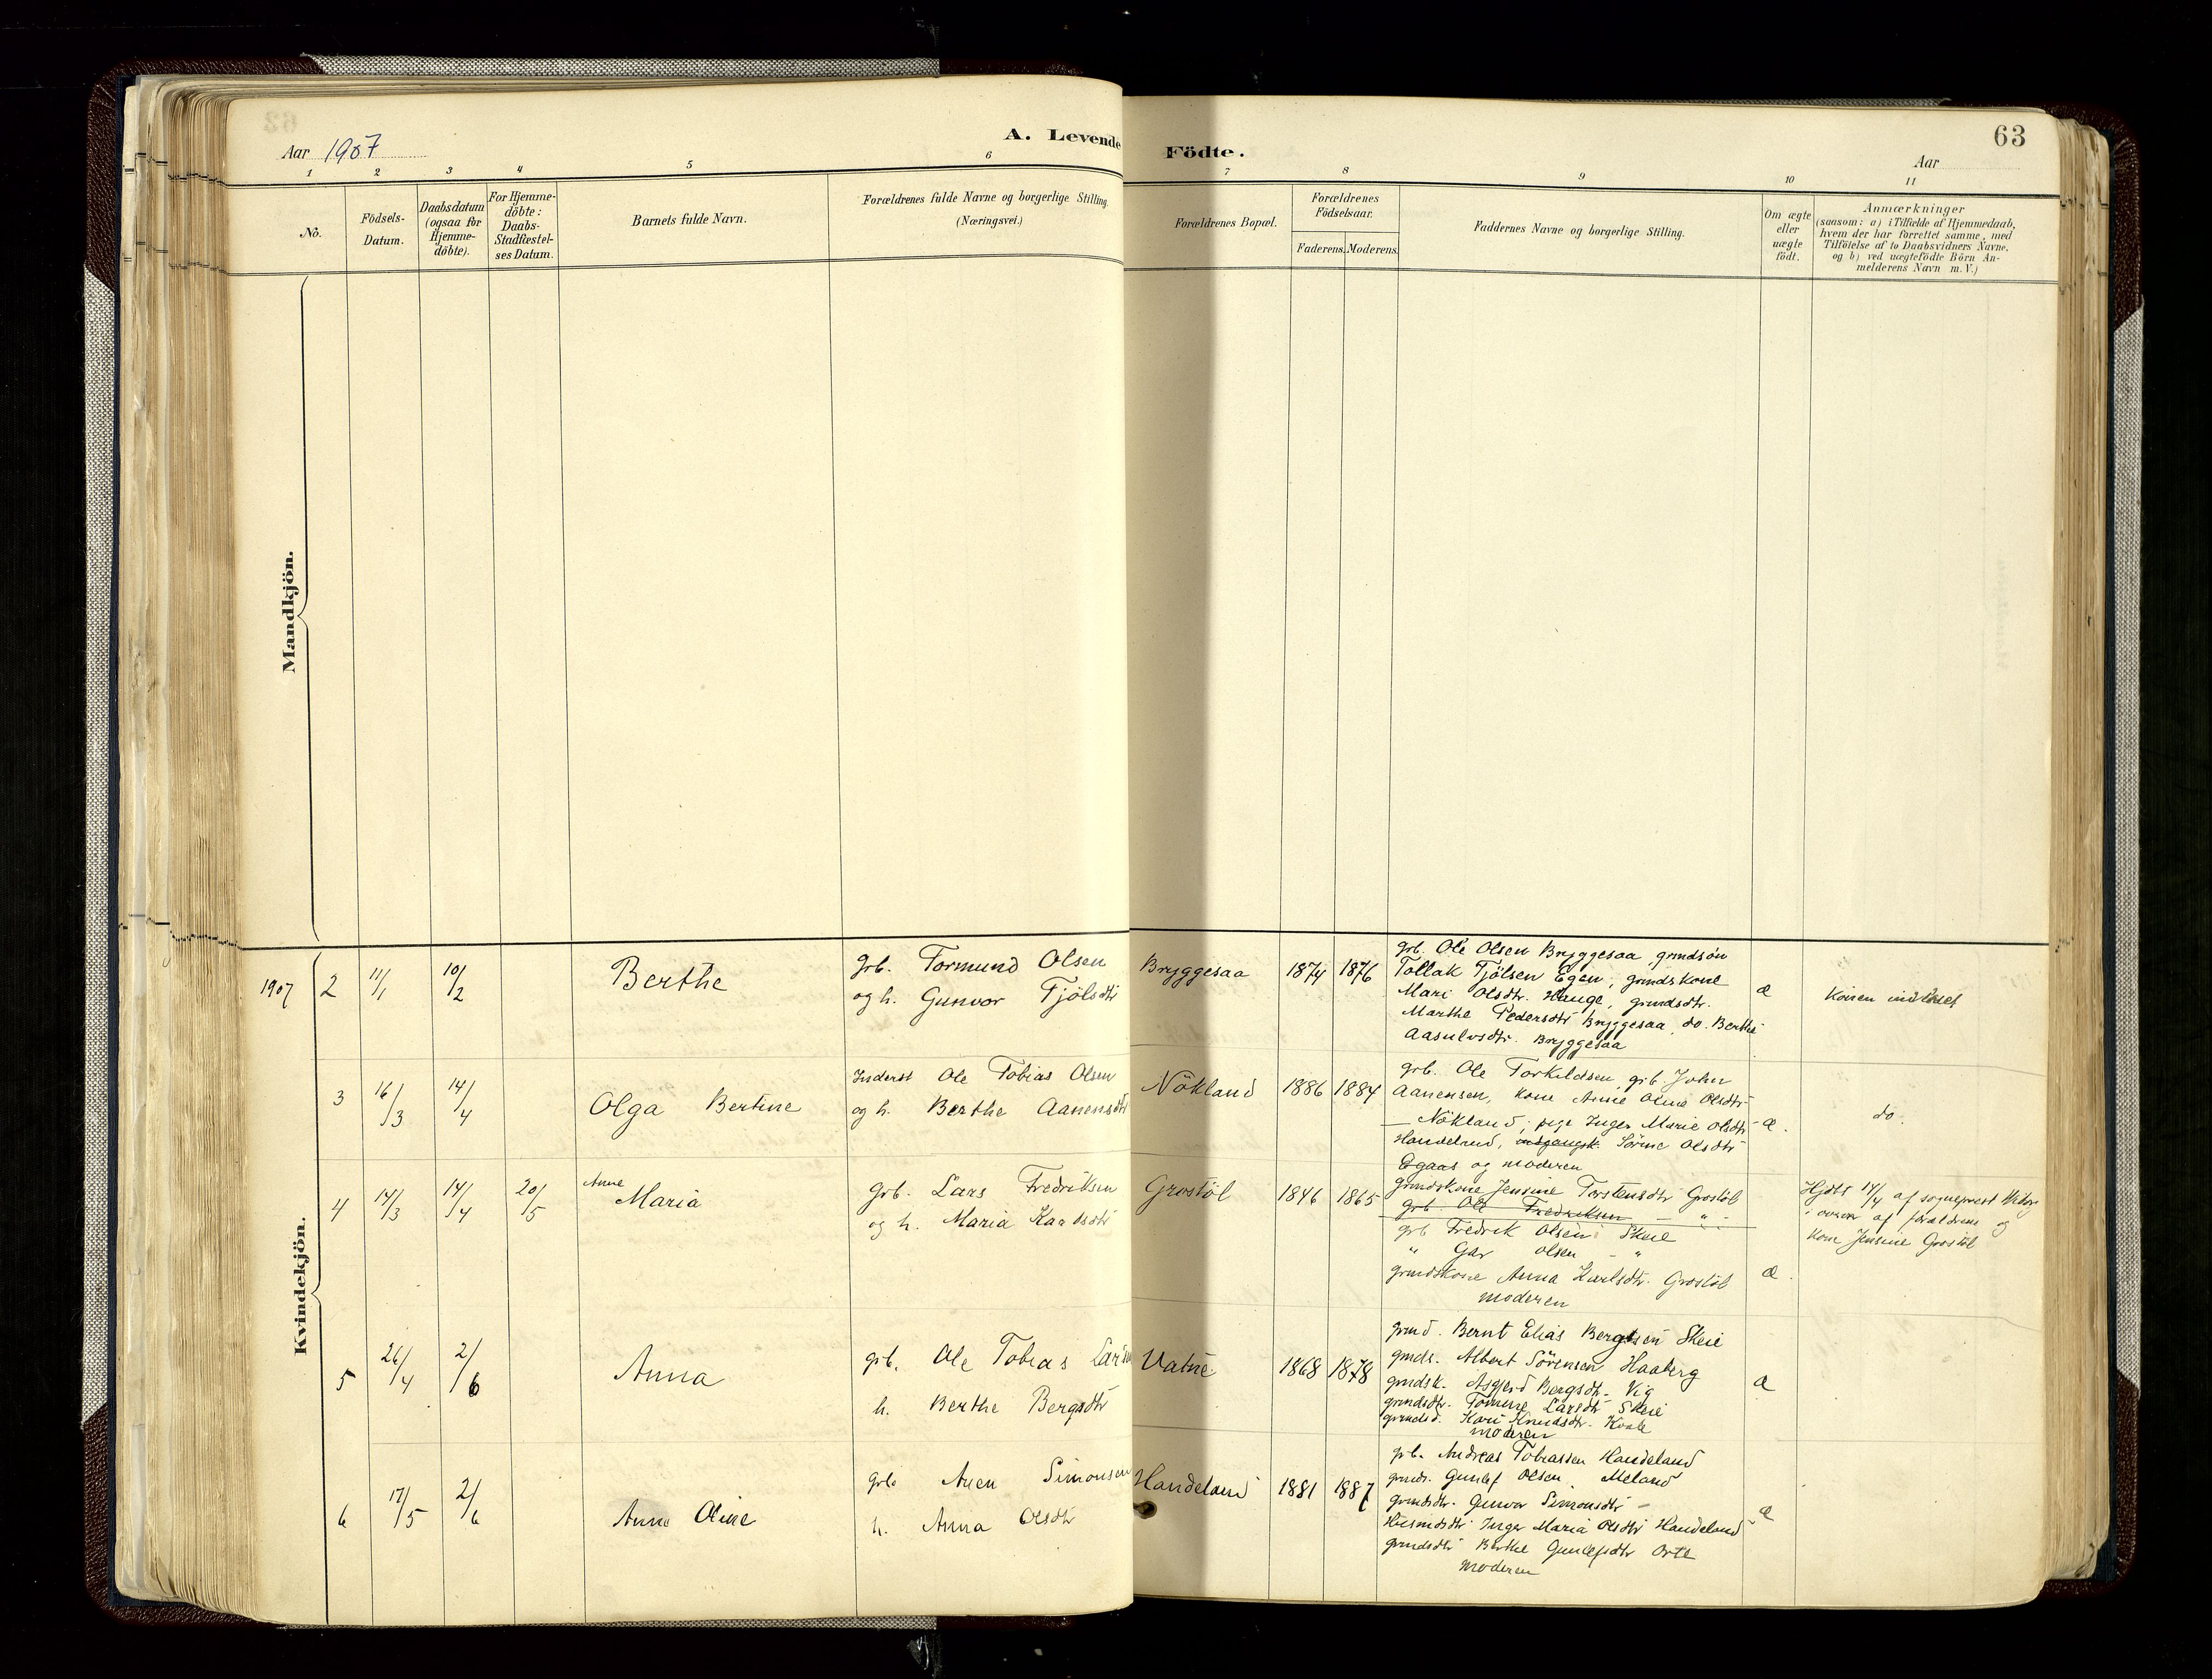 63
Aar 1907
A. Levende Födte.
Aar
1 2 3 4 5 6 7 8 9 10 11
No.
Födsels-
Datum.
Daabsdatum
(ogsaa for
Hjemme-
döbte).
For Hjemme-
döbte:
Daabs-
Stadfæstel-
ses Datum.
Barnets fulde Navn.
Forældrenes fulde Navne og borgerlige Stilling.
(Næringsvei.)
Forældrenes Bopæl.
Forældrenes
Födselsaar.
Faderens. Moderens.
Faddernes Navne og borgerlige Stilling.
Om ægte
eller
uægte
födt.
Anmærkninger
(saasom: a) i Tilfælde af Hjemmedaab,
hvem der har forrettet samme, med
Tilföielse af to Daabsvidners Navne,
og b) ved uægtefödte Börn An-
melderens Navn m.V.)
Mandkjön.
Kvindekjön.
1907 2 11/1 10/2
Berthe
grb. Tormund Olsen
og h. Gunvor Tjölsdtr
Bryggesaa 1874 1876
grb. Ole Olsen Bryggesaa, grmdsön
Tollak Tjölsen Egen, grmdskone
Mari Olsdtr. Hauge, grmdsdtr.
Marthe Pedersdtr Bryggesaa, do. Berthe
Aasulvsdtr. Bryggesaa
æ
Konen
3 16/3 14/4
Olga Bertine
Inderst Ole Tobias Olsen
og h. Berthe Aanensdtr
Nökland 1886 1884
grb. Ole Torkildsen, grb. John
Aanensen, kone Anne Oline Olsdtr
Nökland, pige Inger Marie Olsdtr
Handeland, Sörine Olsdtr
Egaas og moderen
æ.
do.
4 14/3 14/4 20/5
Anne
Maria
grb. Lars Fredriksen
og h. Maria Karlsdtr
Grostöl 1846 1865
grmdskone Jensine Torstensdtr Grostöl
grb. Ole Fredriksen — " —
grb Fredrik Olsen Skeie
" Olsen - "
grmdskone Anna Karlsdtr. Grostöl
moderen
æ.
Hjdbt 14/4 af sogneprest
af forældrene og
kone Jensine Grostöl
5 26/4 2/6
Anna
grb. Ole Tobias Larsen
h. Berthe Bergsdtr
Vatne 1868 1878
grmd. Bernt Elias Bergsen Skeie
grmds. Albert Sörensen Haaberg
grmdsk. Asgjerd Bergsdtr. Vig
grmdsdtr. Tomine Larsdtr Skeie
grmdsd. Kari Knudsdtr.
moderen
æ
6 17/5 2/6
Anne Oline
grb. Anen Simonsen
h. Anna Olsdtr
Handeland 1881 1887
grb. Andreas Tobiassen Handeland
grmds. Gunlef Olsen Meland
grmdsdtr. Gunvor Simonsdtr —
Husmdsdtr Inger Maria Olsdtr Handeland
grmdsdtr Berthe Gunlefsdtr
moderen
æ